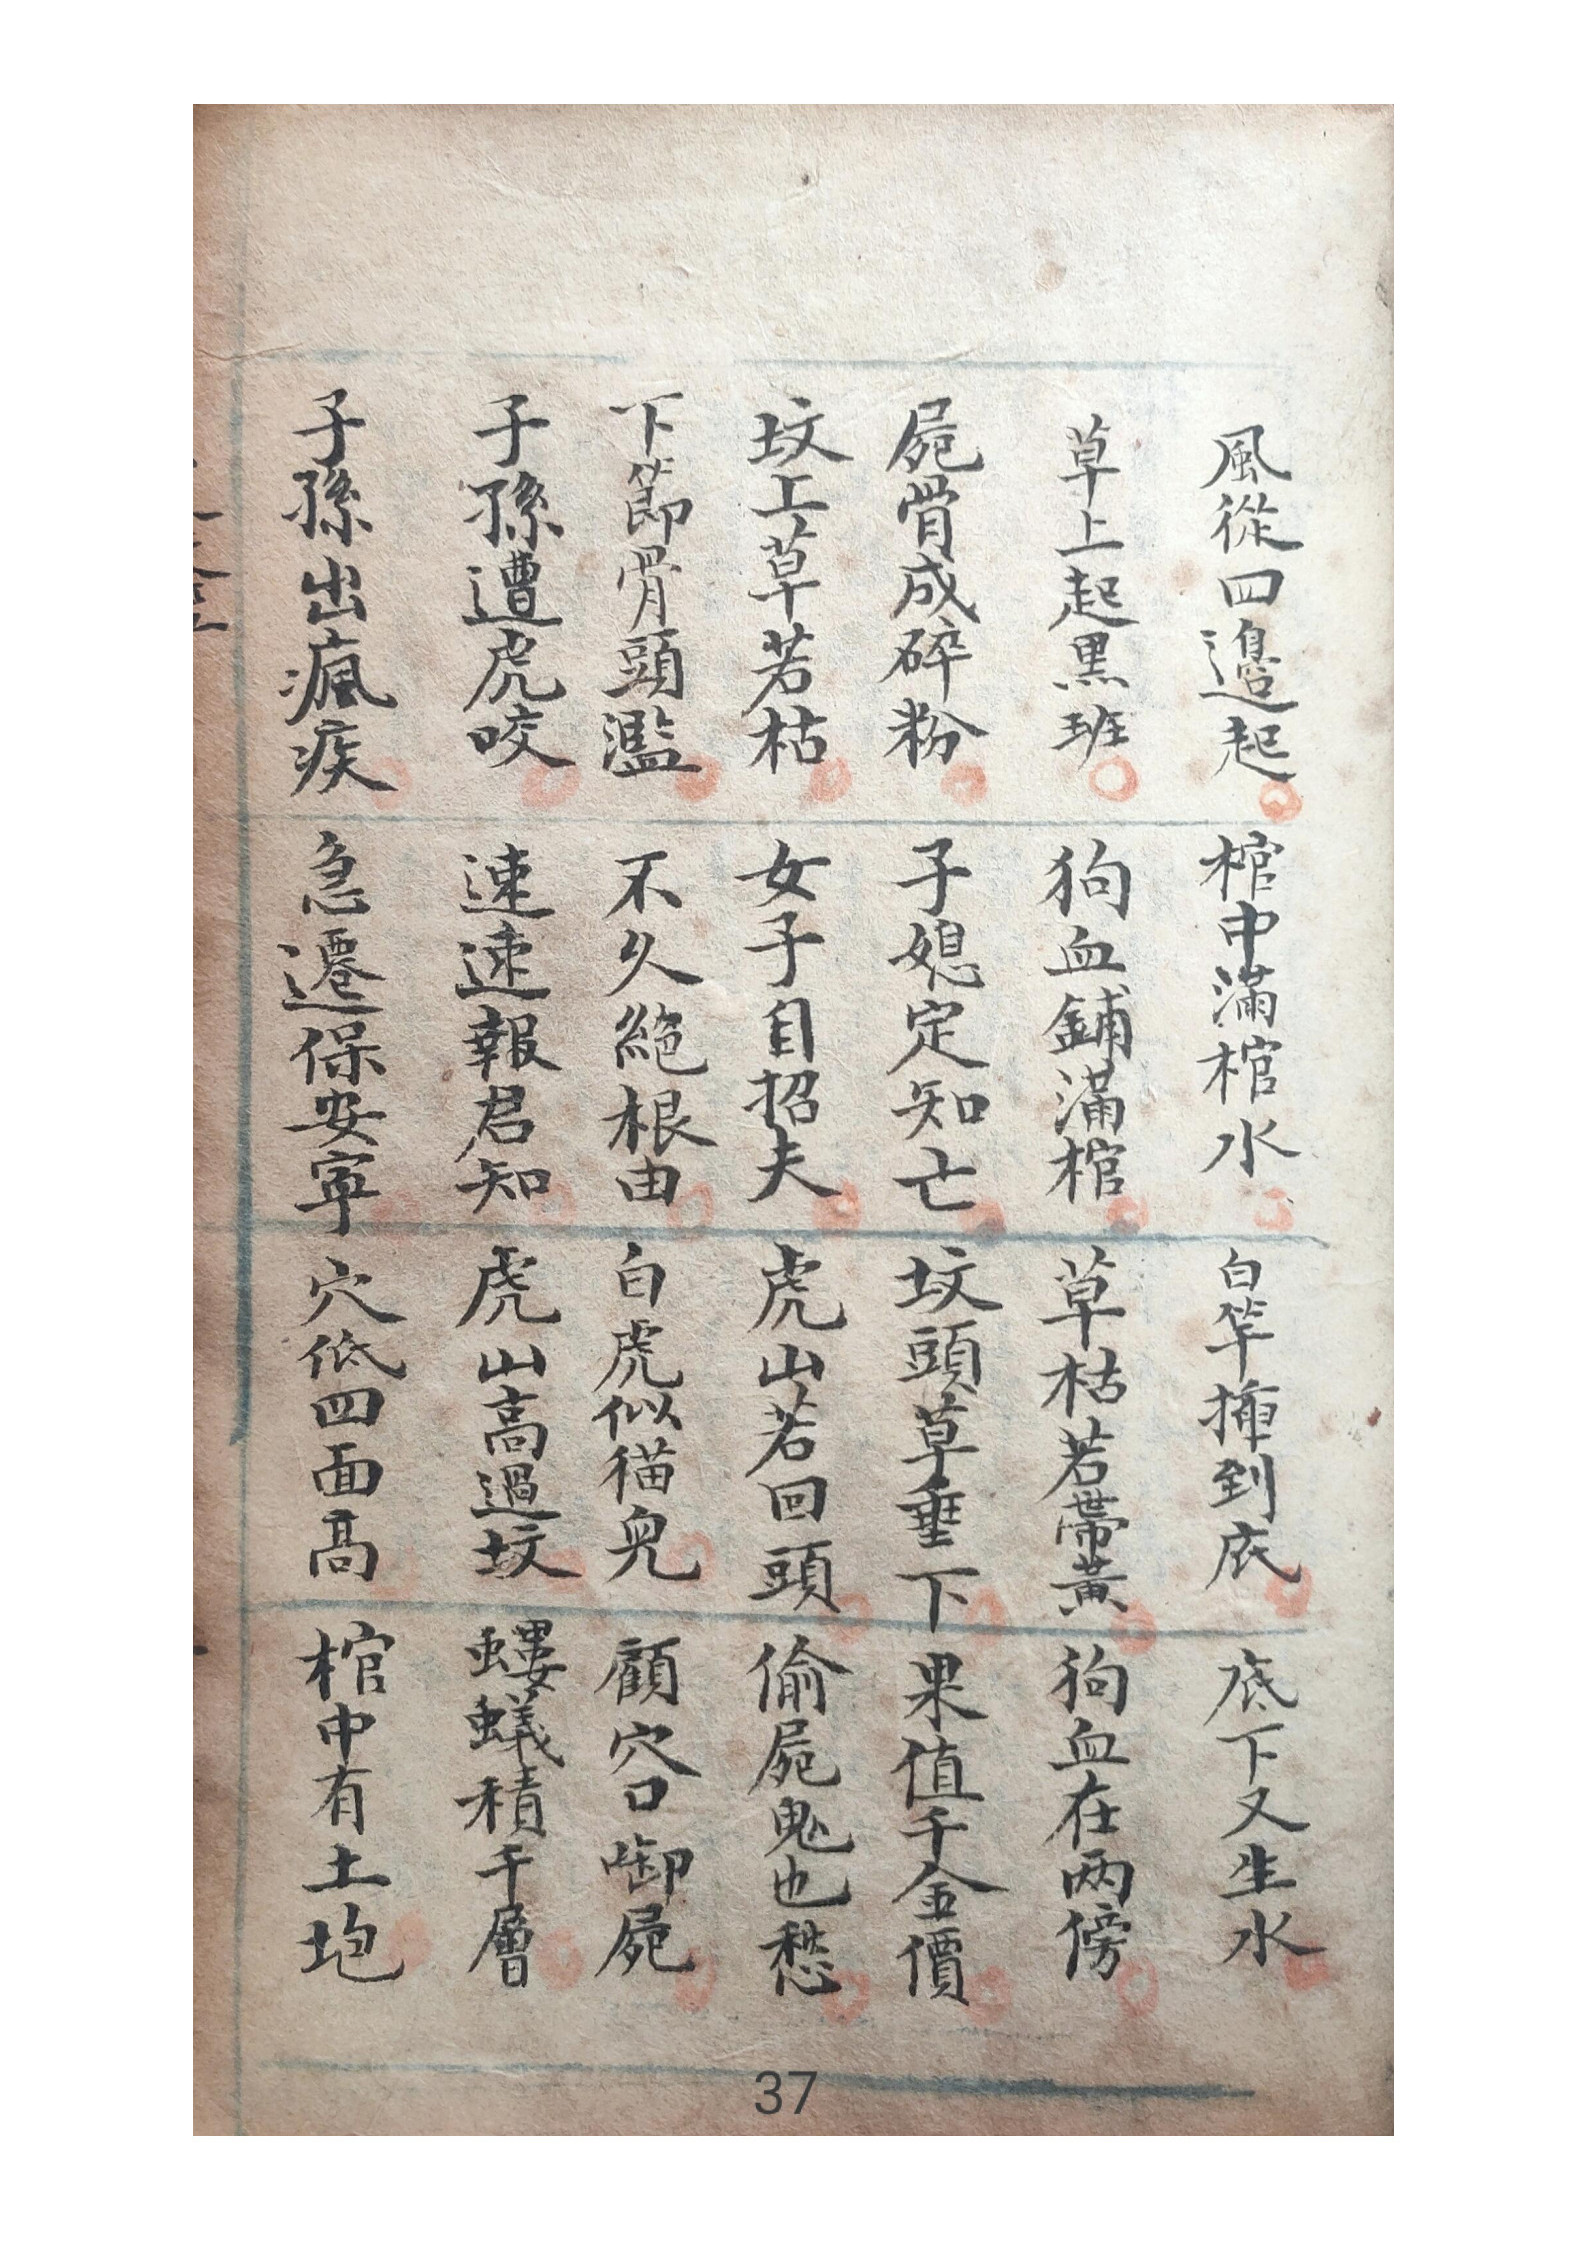 風從四邉起 棺中滿棺水 白竿揷到底 底下又生水
草上起黑班 狗血鋪滿棺 草枯若帶黃 狗血在两傍
屍骨成碎粉 子媳定知亡 坟頭草垂下 果值千金價
坟上草若枯 女子自招夫 虎山若回頭 偷屍鬼也愁
下節骨頭濫 不久絕根由 白虎似猫兒 顧穴口啣屍
子孫遭虎咬 速速報君知 虎山高過坟 螻蟻積千層
子孫出瘋疾 急遷保安寧 穴低四面高 棺中有土垉
37